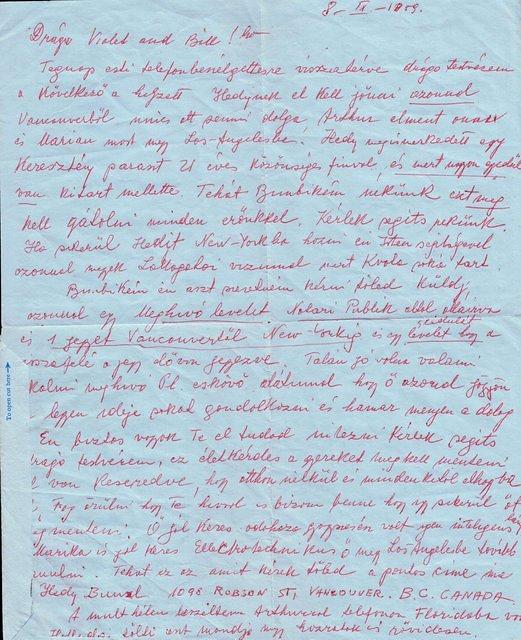 8 - II - 1959.
Drága Violet and Bill!
Tegnap esti telefonbeszélgetésre visszatérve drága testvérem
a következő a helyzet Hedynek el kell jönni azonnal
Vancouverből nincs ott semmi dolga Arthur elment onnan
és Marian most megy Los-Angelesbe. Hedy megismerkedett egy
keresztény paraszt 21 éves közönséges fiuval és mert nagyon egyedül
van kitart mellette Tehát Bumbikém nekünk ezt meg
kell gátolni minden erőnkkel. Kérlek segits nekünk.
Ha sikerül Hedit New-Yorkba hozni én Isten segitségével
azonnal megyek Látogatói vizummal mert Kvota soká tart.
Bumbikém én azt szeretném kérni tőled Küldj
azonnal egy Meghivó levelet Notari Publik által
és 1 jegyet Vancouvertől New-Yorkig és egy levelet hogy a
visszafelé a jegy is jegyezve Talán jó volna valami
meghivó Pl. esküvő dátummal hogy ő azonnal jöjjön
legyen ideje sokat gondolkozni és hamar menjen a dolog
Én biztos vagyok Te el tudod intézni Kérlek segits
drága testvérem, ez életkérdés a gyereket meg kell menteni
van keseredve, hogy otthon nélkül és mindenkitől elhagyba
Fog örülni hogy Te hivod és bizom benne hogy igy sikerül őt
megmenteni. Ő jól keres igen inteligens
Marika is jól keres Ellectrotechnikus ő meg Los Angelesbe tovább
tanulni. Tehát ez az amit kérek tőled a pontos cime ime
Hedy 1098 ROBSON ST, VANCOUVER. B.C. CANADA.
A mult héten beszéltem Arthurral telefonon Floridába van
azt mondja egy
To open cut here